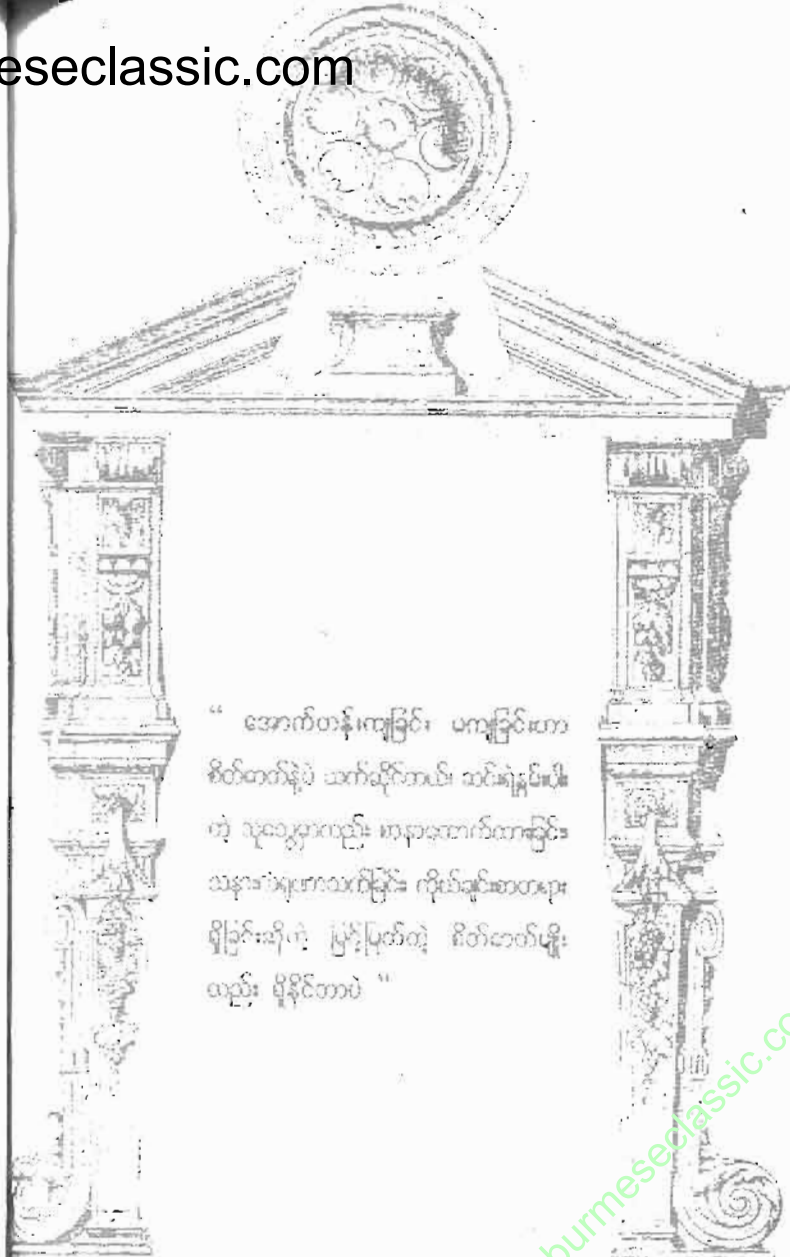 eseclassic.com
“ အောက်တန်းကျခြင်း မကျခြင်းဟာ
စိတ်ဓာတ်နဲ့ပဲ သက်ဆိုင်တယ်၊ ဆင်းရဲနွမ်းပါး
တဲ့ သူတွေမှာလည်း စာနာထောက်ထားခြင်း
သနားကရုဏာသက်ခြင်း ကိုယ်ချင်းစာတရား
ရှိခြင်းဆိုတဲ့ မြင့်မြတ်တဲ့ စိတ်ဓာတ်မျိုး
လည်း ရှိနိုင်တာပဲ “
burmeseclassic.co